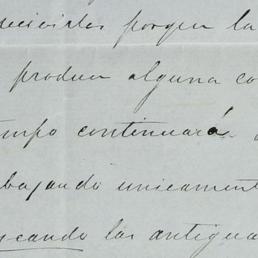 porque la
produce alguna
continuará
bajando unicament
cando las antigua